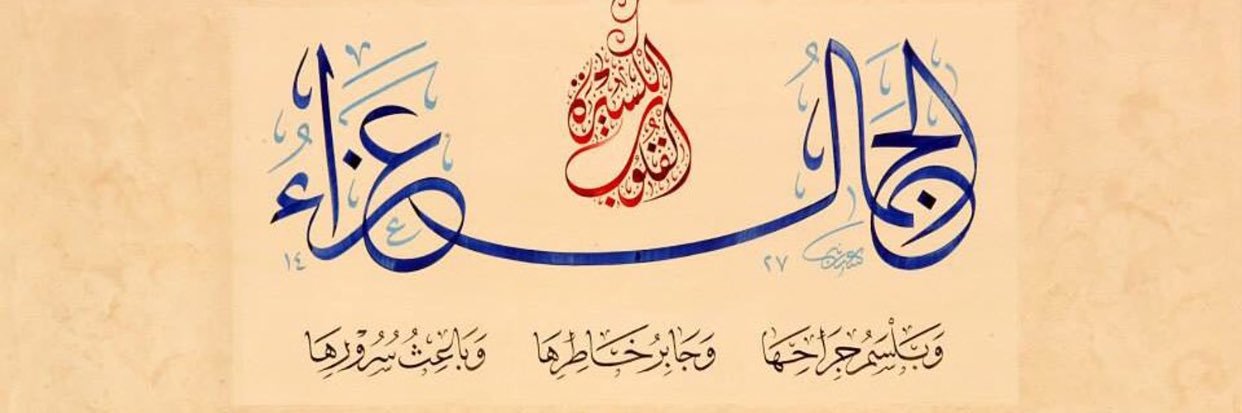 الجمال عزاء
القلوب الكسيرة
١٤ ٢٧
وَبَلْسَمُ جِرَاحِهَا وَجَابِرُ خَاطِرِهَا وَبَاعِثُ سُرُوْرِهَا